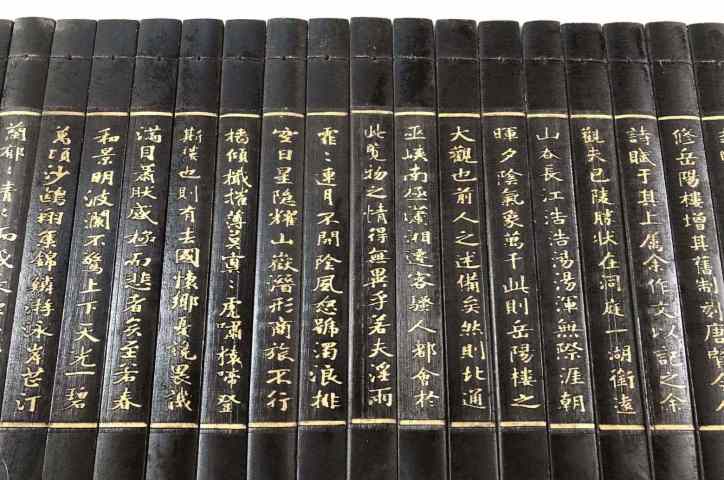 修岳陽樓增其舊制刻唐賢今人
詩賦于其上属余作文以記之余
觀夫巴陵勝狀在洞庭一湖銜遠
山吞長江浩浩湯湯渾無際涯朝
暉夕陰氣象萬千此則岳陽樓之
大觀也前人之述備矣然則北通
巫峽南極瀟湘遷客騷人都會於
此览物之情得無異乎若夫淫雨
霏〻連月不開陰風怒號濁浪排
空日星隐耀山嶽潛形商旅不行
樯傾檝摧薄暮冥〻虎嘯猿啼登
斯樓也則有去國懷鄉憂讒畏譏
滿目蕭然感極而悲者矣至若春
和景明波瀾不驚上下天光一碧
萬頃沙鷗翔集錦鱗游泳岸芷汀
蘭郁〻青〻而或